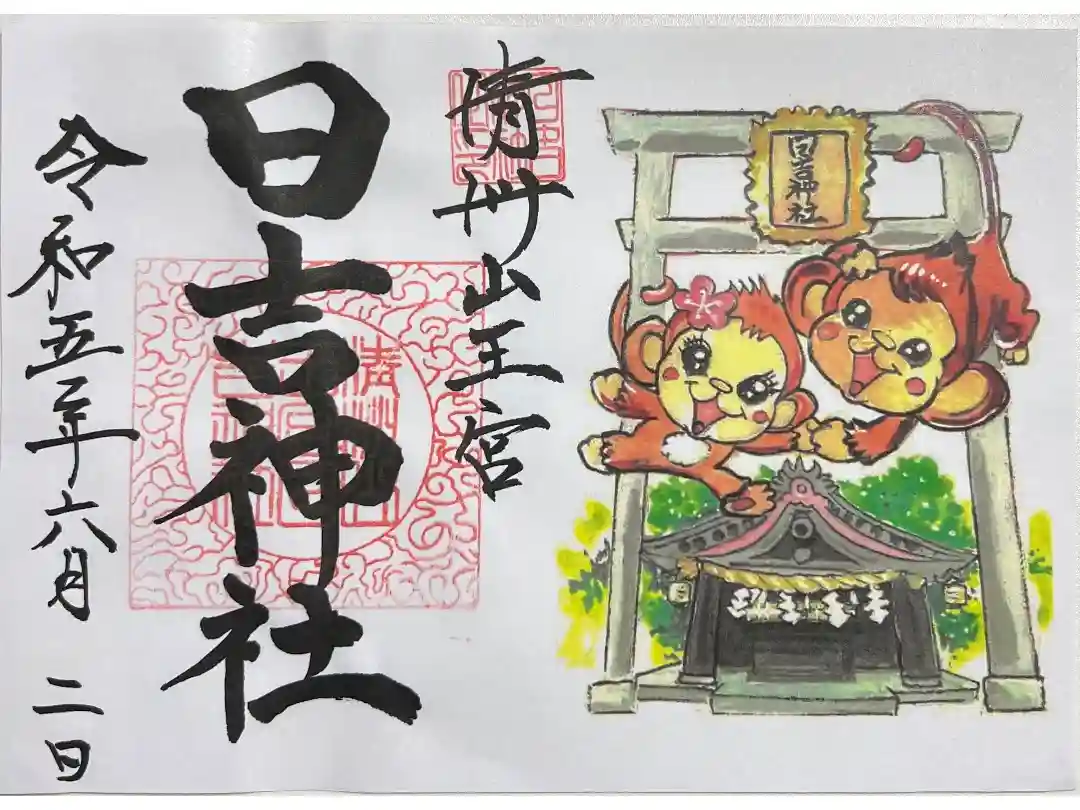 清州山王宮
日吉神社
令和五年六月 二日
日吉神社